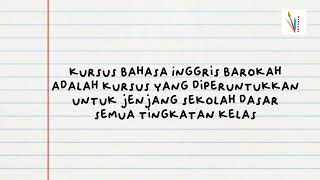 KURSUS BAHASA iNGGRiS BAROKAH
ADALAH KURSUS YANG DiPERUNTUKKAN
UNTUK JENJANG SEKOLAH DASAR
SEMUA TiNGKATAN KELAS